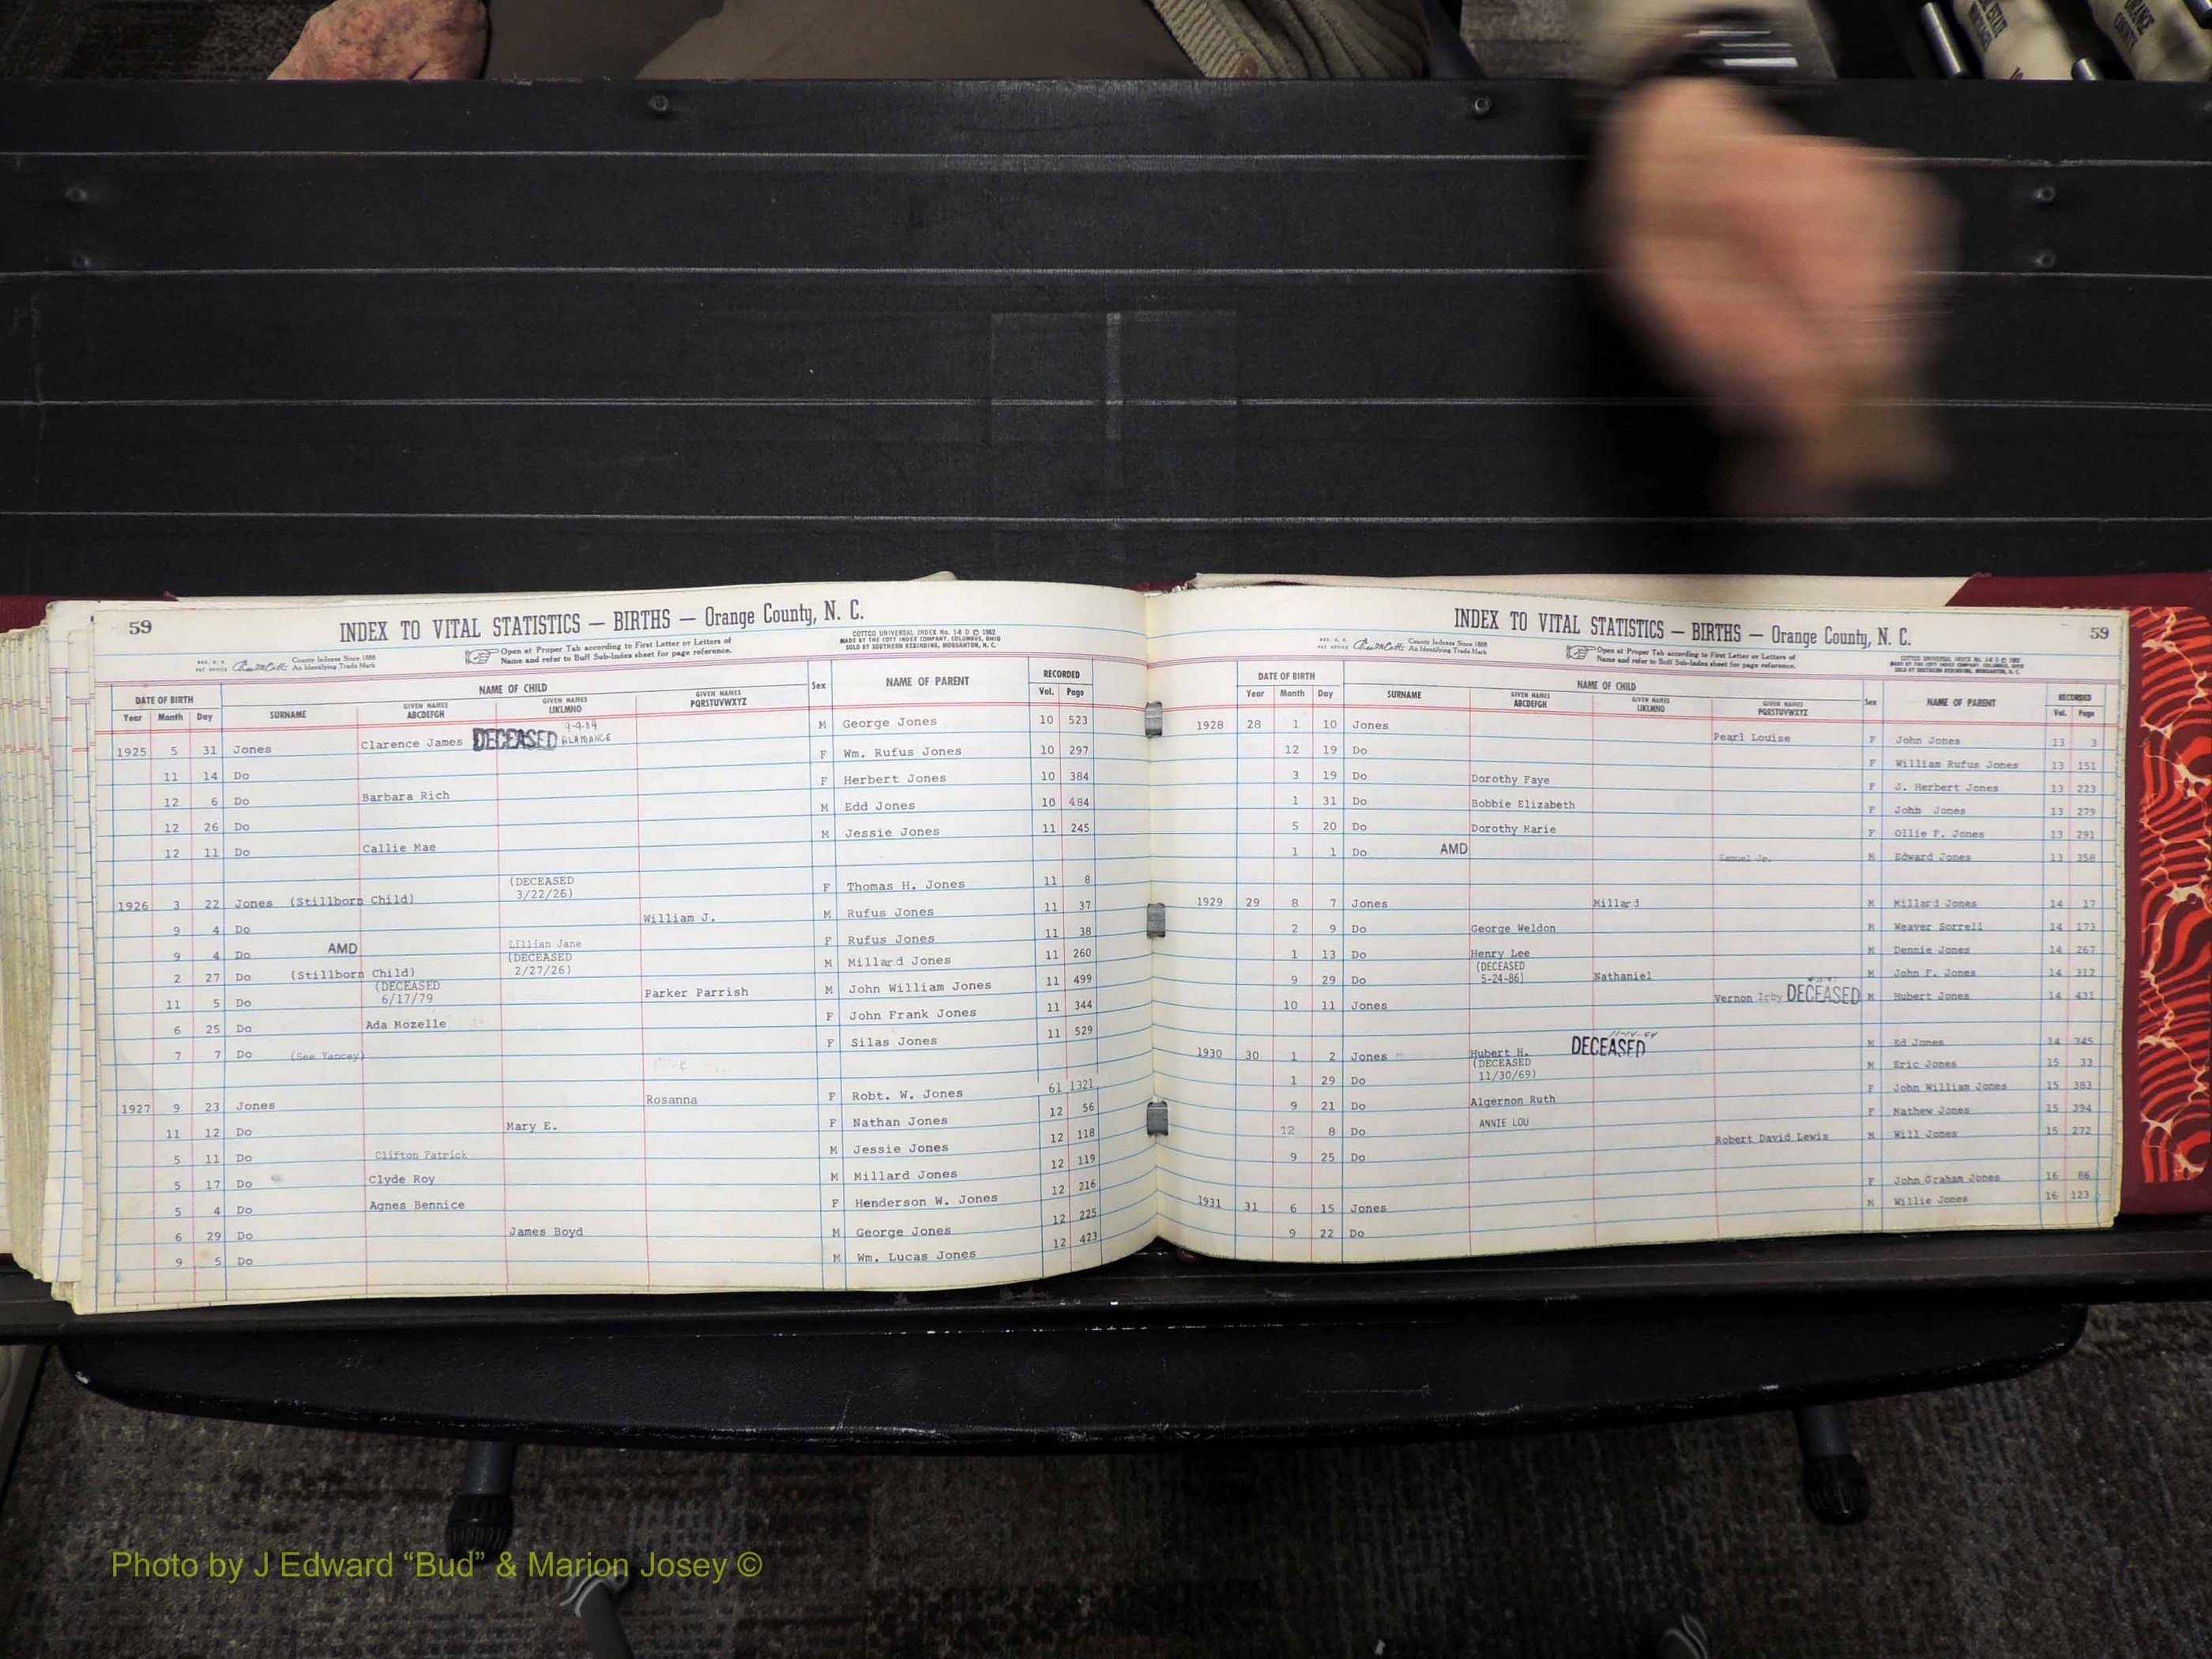 59
INDEX TO VITAL STATISTICS — BIRTHS — Orange County, N. C.
County Indexes Since 1888
An Identifying Trade Mark
Open at Proper Tab according to First Letter or Letters of
Name and refer to Buff Sub-Index sheet for page reference.
COTTCO UNIVERSAL INDEX No. 1-8 D © 1962
MADE BY THE COTT INDEX COMPANY, COLUMBUS, OHIO
SOLD BY SOUTHERN REBINDING, MORGANTON, N. C.
DATE OF BIRTH NAME OF CHILD Sex NAME OF PARENT RECORDED
Year Month Day SURNAME GIVEN NAMES ABCDEFGH GIVEN NAMES IJKLMNO GIVEN NAMES PQRSTUVWXYZ Vol. Page
1925 5 31 Jones Clarence James DECEASED 9-9-84 ALAMANCE M George Jones 10 523
11 14 Do F Wm. Rufus Jones 10 297
12 6 Do Barbara Rich F Herbert Jones 10 384
12 26 Do M Edd Jones 10 484
12 11 Do Callie Mae M Jessie Jones 11 245
1926 3 22 Jones (Stillborn Child) (DECEASED 3/22/26) F Thomas H. Jones 11 8
9 4 Do William J. M Rufus Jones 11 37
9 4 Do AMD Lillian Jane F Rufus Jones 11 38
2 27 Do (Stillborn Child) (DECEASED 2/27/26) M Millard Jones 11 260
11 5 Do (DECEASED 6/17/79 Parker Parrish M John William Jones 11 499
6 25 Do Ada Mozelle F John Frank Jones 11 344
7 7 Do (See Yancey) F Silas Jones 11 529
1927 9 23 Jones Rosanna F Robt. W. Jones 61 1321
11 12 Do Mary E. F Nathan Jones 12 56
5 11 Do Clifton Patrick M Jessie Jones 12 118
5 17 Do Clyde Roy M Millard Jones 12 119
5 4 Do Agnes Bennice F Henderson W. Jones 12 216
6 29 Do James Boyd M George Jones 12 225
9 5 Do M Wm. Lucas Jones 12 423
INDEX TO VITAL STATISTICS — BIRTHS — Orange County, N. C.
59
County Indexes Since 1888
An Identifying Trade Mark
Open at Proper Tab according to First Letter or Letters of
Name and refer to Buff Sub-Index sheet for page reference.
DATE OF BIRTH NAME OF CHILD Sex NAME OF PARENT RECORDED
Year Month Day SURNAME GIVEN NAMES ABCDEFGH GIVEN NAMES IJKLMNO GIVEN NAMES PQRSTUVWXYZ Vol. Page
1928 28 1 10 Jones Pearl Louise F John Jones 13 3
12 19 Do F William Rufus Jones 13 151
3 19 Do Dorothy Faye F J. Herbert Jones 13 223
1 31 Do Bobbie Elizabeth F John Jones 13 279
5 20 Do Dorothy Marie F Ollie F. Jones 13 291
1 1 Do AMD Samuel Jr. M Edward Jones 13 358
1929 29 8 7 Jones Millard M Millard Jones 14 17
2 9 Do George Weldon M Weaver Sorrell 14 173
1 13 Do Henry Lee M Dennie Jones 14 267
9 29 Do (DECEASED 5-24-86) Nathaniel M John F. Jones 14 312
10 11 Jones Vernon Irby DECEASED M Hubert Jones 14 431
1930 30 1 2 Jones Hubert H. DECEASED M Ed Jones 14 345
1 29 Do (DECEASED 11/30/69) M Eric Jones 15 33
9 21 Do Algernon Ruth F John William Jones 15 383
12 8 Do ANNIE LOU F Mathew Jones 15 394
9 25 Do Robert David Lewis M Will Jones 15 272
1931 31 6 15 Jones F John Graham Jones 16 86
9 22 Do M Willie Jones 16 123
Photo by J Edward “Bud” & Marion Josey ©